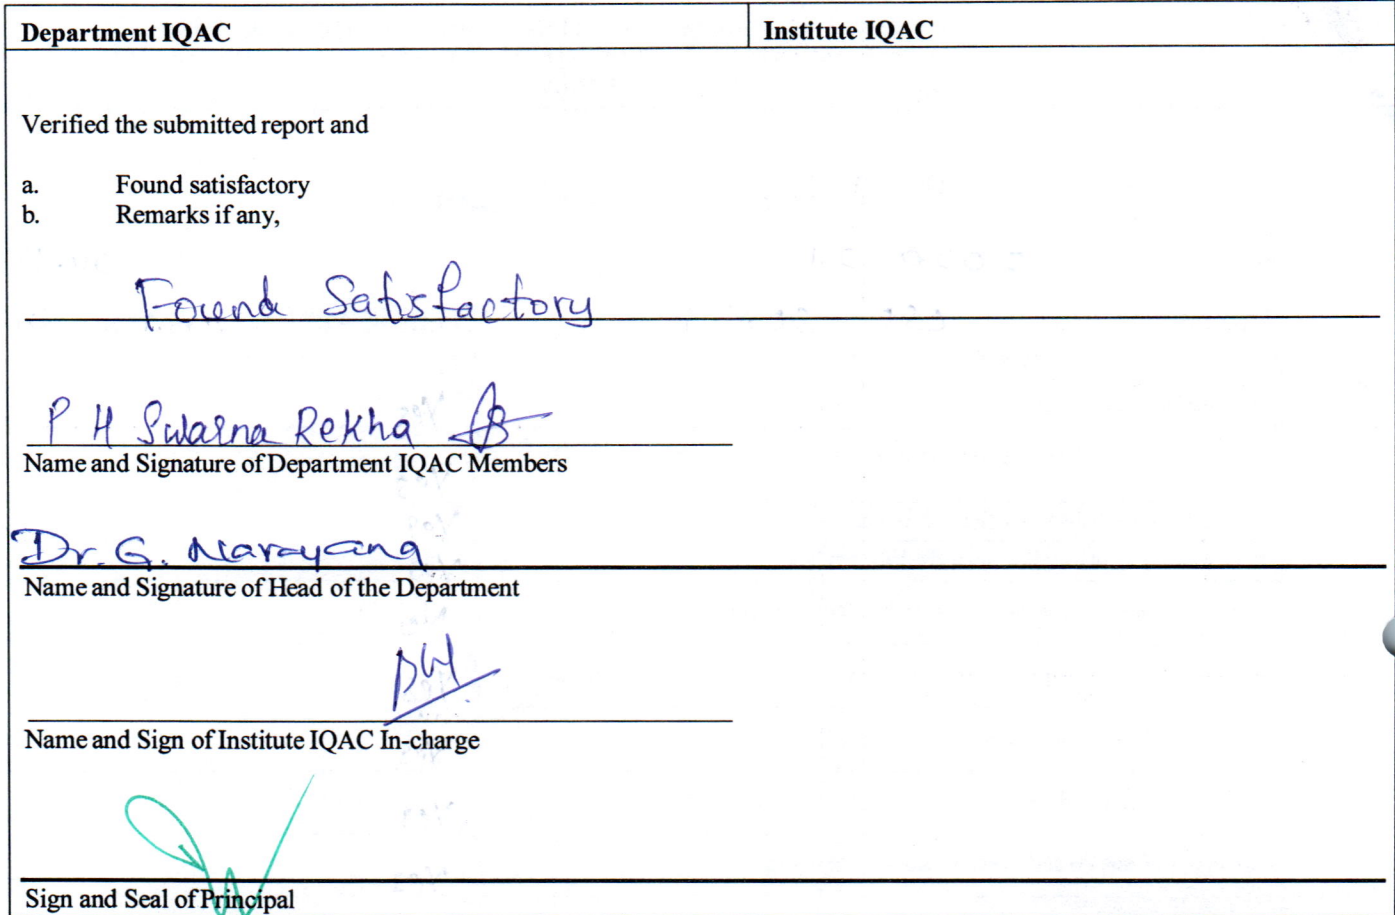 Department IQAC Institute IQAC
Verified the submitted report and
a. Found satisfactory
b. Remarks if any,
Found Satisfactory
P H Swarna Rekha
Name and Signature of Department IQAC Members
Dr. G. Narayana
Name and Signature of Head of the Department
Name and Sign of Institute IQAC In-charge
Sign and Seal of Principal